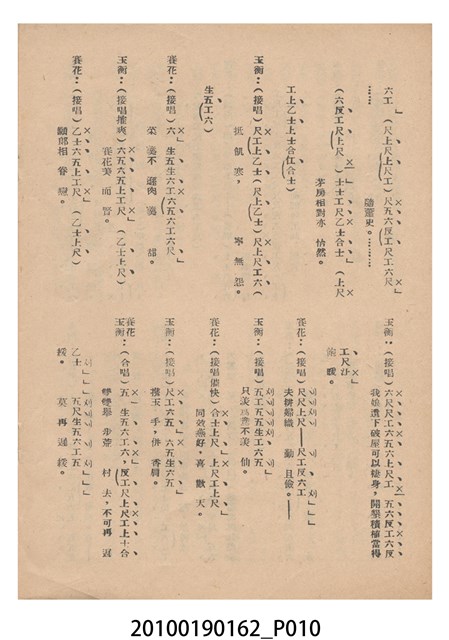 六工 (尺上尺上尺工) 尺五六反工尺工六尺
隨蕭史。………
………
(六反工尺上尺) 士士工尺乙士合士 (上尺
茅房相對亦 怡然。
工上乙士上士合仜合士)
玉衡:(接唱) 尺工上乙士 (尺上乙士) 尺上尺工六 (
抵飢寒, 寧無怨。
生五工六)
賽花:(接唱) 六 生五生六工六五六工六尺
菜羹不遜肉羹 甜。
玉衡:(接唱攉爽) 六五六五上工尺 (乙士上尺)
賽花美而賢。
賽花:(接唱) 乙士六五上工尺 (乙士上尺)
願郎相眷戀。
玉衡:(接唱) 六尺尺工六工六尺上尺工 五六反工六反
我雖遺下破屋可以棲身,開墾積植當得
工尺㐅
飽暖。
賽花:(接唱) 尺尺上尺——尺工反六工
夫耕婦織 勤且儉。——
玉衡:(接唱) 五工五五生工六五
只羨鴛鴦不羨仙。
賽花:(接唱催快) 合士上尺 上尺工上尺
同效燕好,喜敵天。
玉衡:(接唱) 尺工六五 六五生六五
攜玉手,併香肩。
賽花
玉衡:(合唱) 五 生五六工六,反工尺上尺工上士合
雙雙舉步荒 村去,不可再 遲
乙士 五尺生五六工五
緩。 莫再遲緩。
20100190162_P010